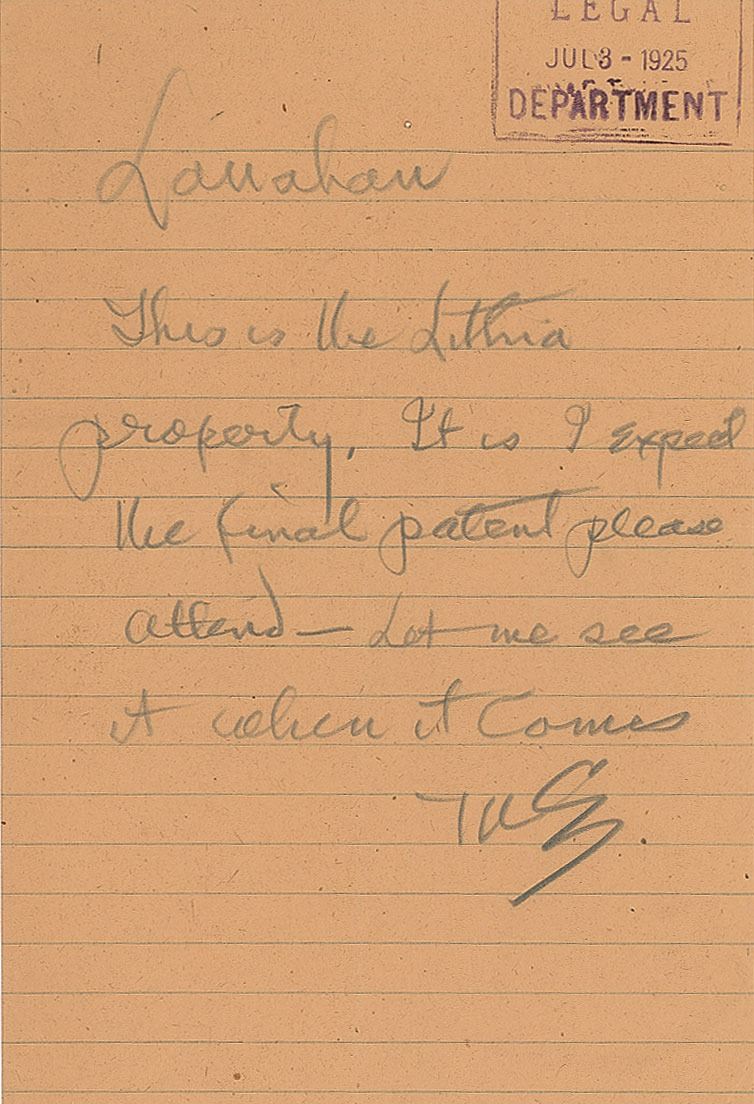 LEGAL
JUL 3 - 1925
DEPARTMENT
Lanahan
This is the Lithia
property. It is I expect
the final patent please
attend — Let me see
it when it comes